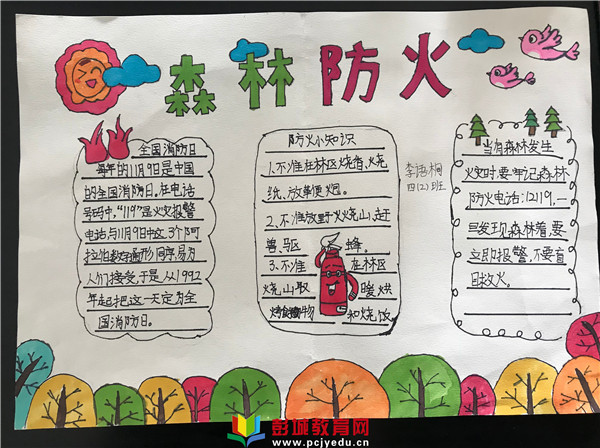 森林防火
全国消防日
每年的11月9日是中国
的全国消防日。在电话
号码中，“119”是火灾报警
电话与11月9日中这3个阿
拉伯数字
形同,易为
人们接受,于是从1992
年起把这一天定为全
国消防日。
防火小知识
1.不准在林区烧香、烧
纸、放鞭炮。
2、不准放野火烧山、赶
兽、驱蜂。
3、不准在林区
烧山取暖烘
烤食物和烧饭
李语桐
四(2)班
当有森林发生
火灾时要牢记森林
防火电话:12119,一
旦发现森林着,要
立即报警,不要盲
目救火。
彭城教育网
www.pcjyedu.cn